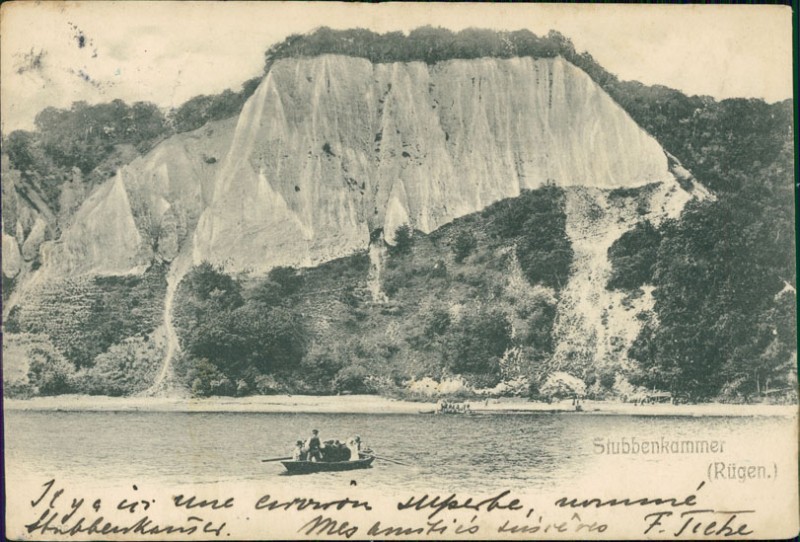 Stubbenkammer
(Rügen.)
Il y a ici une environ superbe, nommé
Stubbenkamer. Mes amitiés sincères F. Tietze